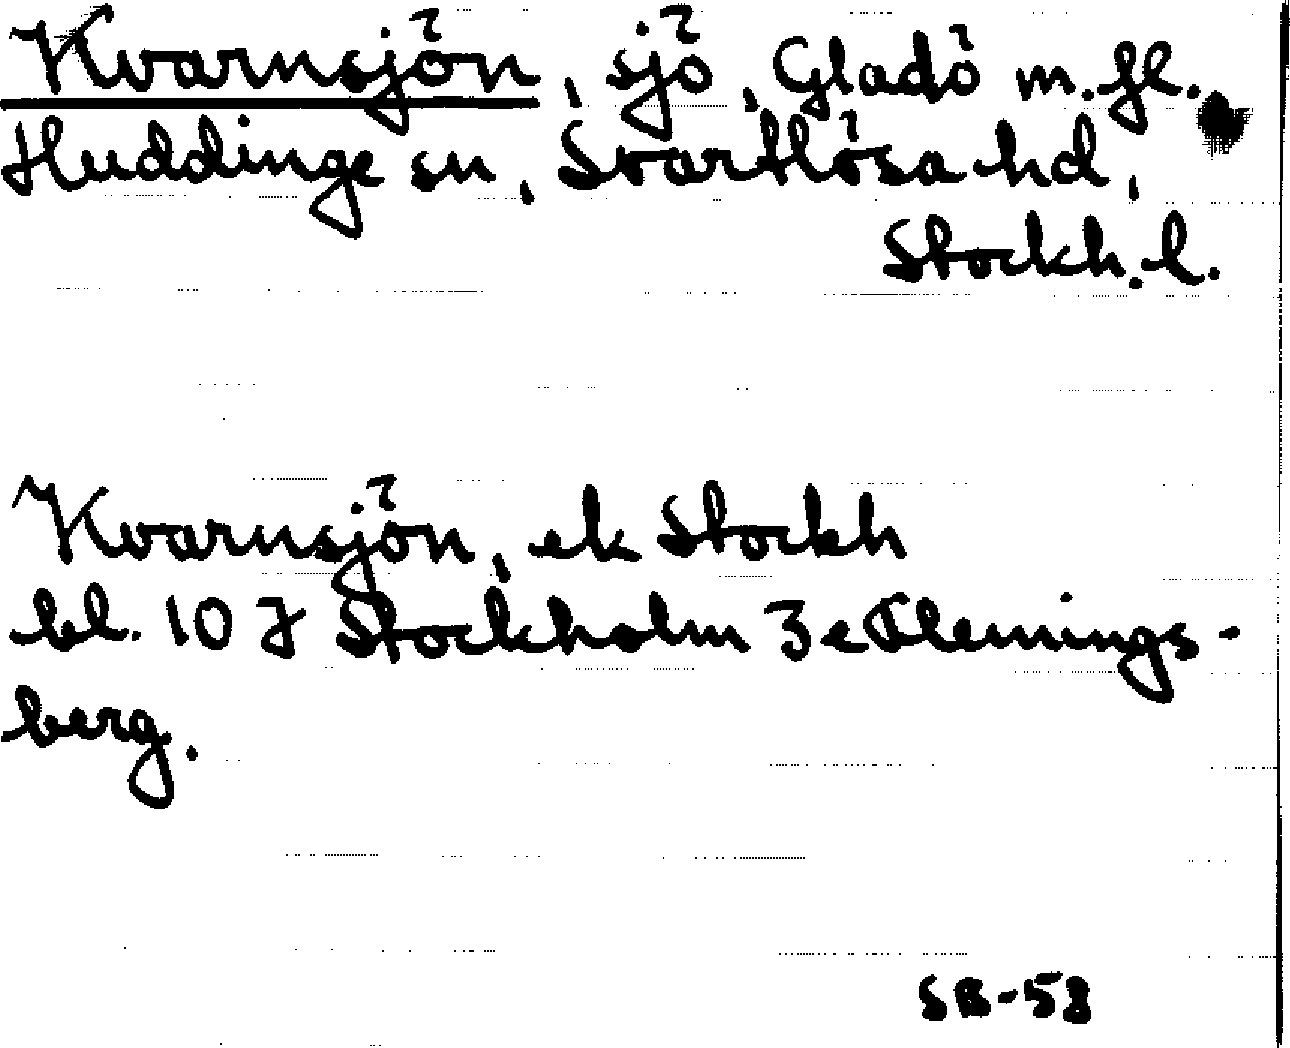 Kvarnsjön, sjö, Gladö m.fl.
Huddinge sn, Svartlösa hd,
Stockh.l.
Kvarnsjön, ek Stockh
bl. 10 J Stockholm 3e Flemings-
berg.
SB-58